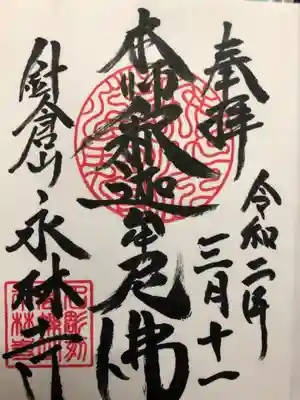 奉拝
令和二年
三月十一
本師釈迦牟尼佛
針倉山永林寺